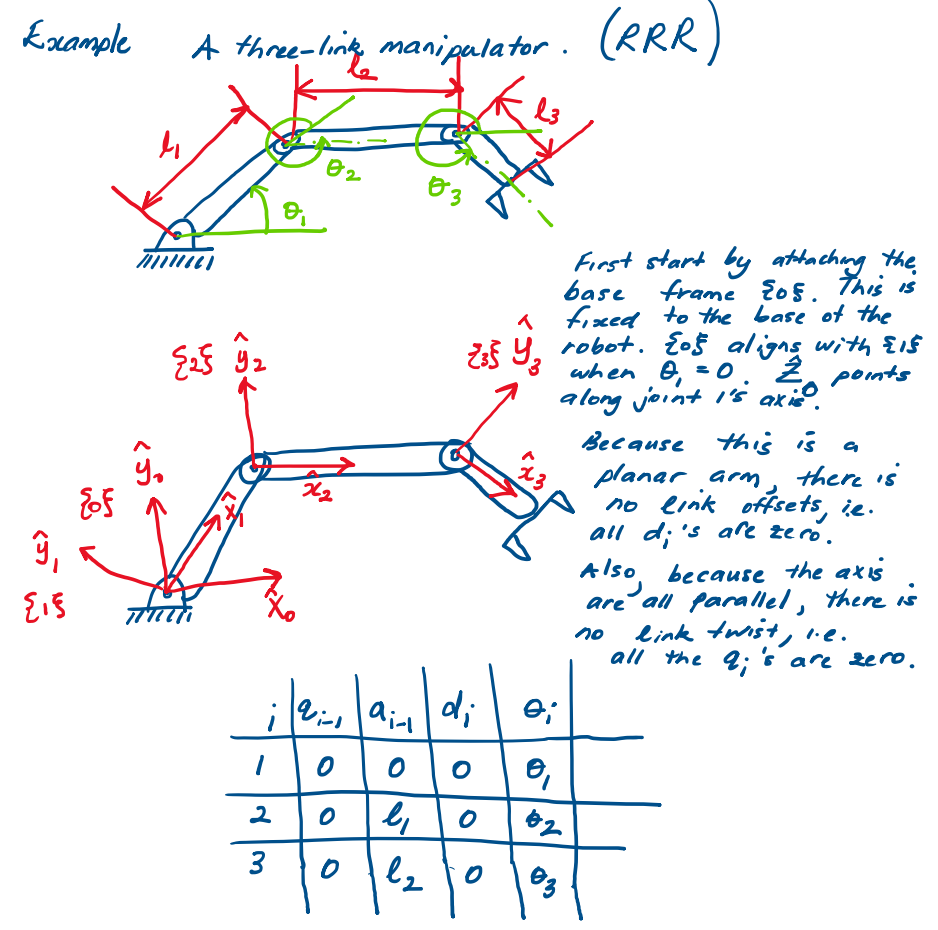 Example A three-link manipulator. (RRR)
l₂
l₁
l₃
θ₂
θ₃
θ₁
First start by attaching the
base frame {0}. This is
fixed to the base of the
robot. {0} aligns with {1}
when θ₁ = 0. Ẑ₀ points
along joint 1's axis.
{2} ŷ₂
{3} ŷ₃
Because this is a
planar arm, there is
no link offsets, i.e.
all dᵢ's are zero.
ŷ₀
{0}
x̂₁
x̂₂
x̂₃
ŷ₁
{1}
x̂₀
Also, because the axis
are all parallel, there is
no link twist, i.e.
all the qᵢ's are zero.
i qᵢ₋₁ aᵢ₋₁ dᵢ θᵢ
1 0 0 0 θ₁
2 0 l₁ 0 θ₂
3 0 l₂ 0 θ₃